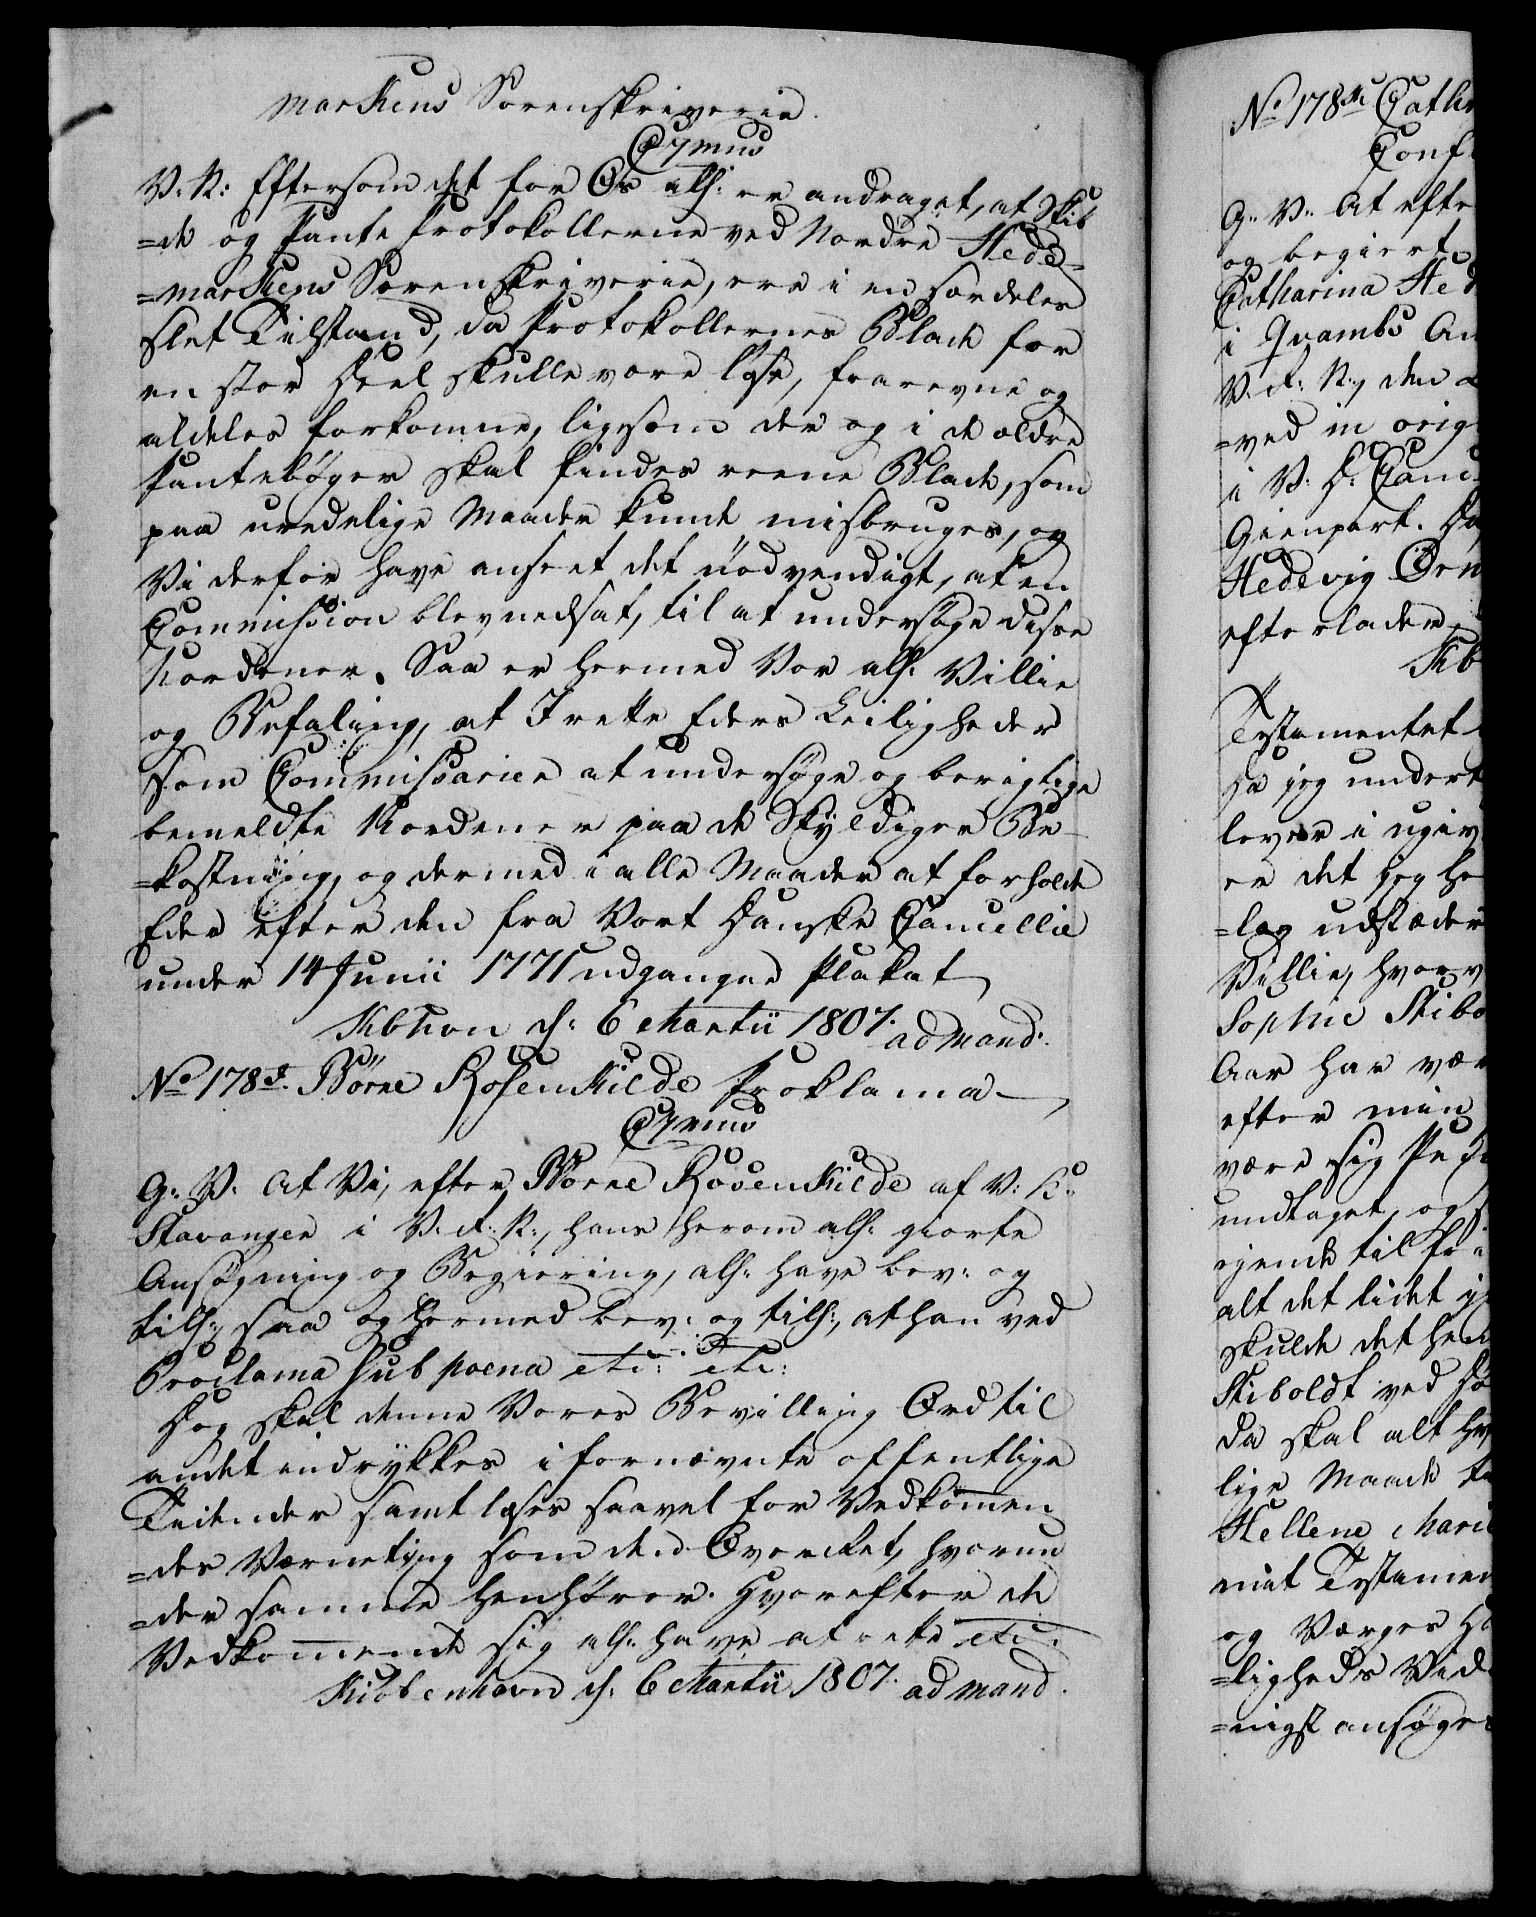 markens Sorenskriverie.
C 7mus
V. K: Eftersom det for Os allh: er andraget, at Skif
=de og Pante Protokollerne ved Nordre Hede=
=markens Sorenskriverie, ere i en særdeles
slet Tilstand, da Protokollernes Blade for
en stor Deel skulle være løse, frarevne og
aldeles forkomne, ligesom der og i de ældre
Pantebøger skal findes reene Blade, som
paa uredelige Maader kunde misbruges, og
Vi derfor have anseet det nødvendigt, at en
Commission blev nedsat, til at undersøge disse
Uordener. Saa er hermed Vor allh: Villie
og Befaling, at I rette Eders Leiligheder
som Commissarier at undersøge og berigtige
bemeldte Uordener paa de Skyldiges Be
=kostning, og dermed i alle Maader at forholde
Eder efter den fra Vort Danske Cancellie
under 14 Junii 1771 udgangne Plakat
Kbhvn d: 6 Martii 1807. ad mand:
No 178 d. Børne Rosenkilde Proklama
C 7mus
G: V: At Vi, efter Børne Rosenkilde af V: K:
Stavanger i V. d. R:, hans herom allh: giorte
Ansøgning og Begiering, allh: have bev: og
till:, saa og hermed bev: og till:, at han ved
Proclama sub poena etc: etc:
Dog skal denne Vores Bevilling Ord til
andet indrykkes i fornævnte offentlige
Tidender samt læses saavel for Vedkommen
=des Værneting som den Overret, hvorun
=der samme henhører. Hvorefter de
Vedkommende sig allh: have at rette etc:
Kiøbenhavn d: 6 Martii 1807. ad mand.
No 178 e Cathr
Conf
G: V: At efte
og begiert
Catharina Hed
i Qvambs An
V. d: R:, den
=ved in orig
i V. D. Canc
Gienpart. Da
Hedevig Orn
efterlader
Kb
Testamentet
Da jeg undert
lever i ugiv
er det jeg he
=læg udstæder
Villie, hvorv
Sophie Stibo
Aar har vær
efter min
være sig Pe
undtaget, og
eiende til fr
alt det lidet j
skulde det hen
Stiboldt ved Dø
da skal alt hv
lige Maade til
Hellene Marie
mit Testamen
og Værges H
=ligheds Vid
=nigst ansøge